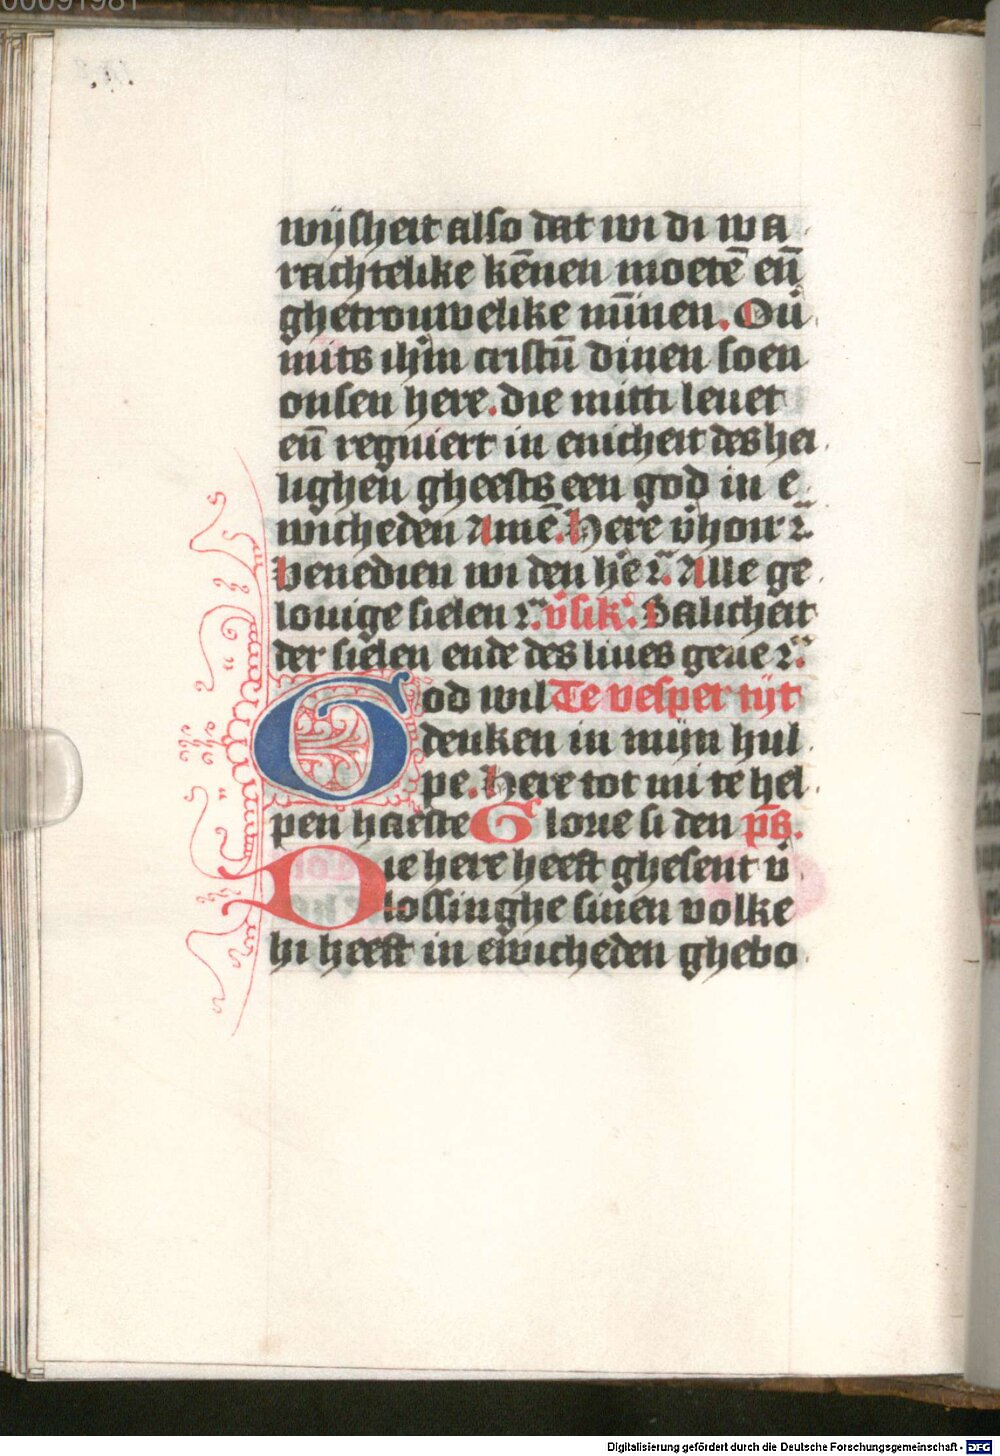 00091981
wijsheit also dat wi di wa
rachtelike kēnen moetē eñ
ghetrouwelike mīnen. Ou̇
mits ihm̄ cristū dinen soen
onsen here. die mitti leuet
eñ regniert in enicheit des hei
lighen gheests een god in e
wicheden Amē. Here v̇hoir ꝛ̄
Benedien wi den hēꝛ ꝛ̄. Alle ge
louige sielen ꝛ̄. v̇sik᷒. Salicheit
der sielen ende des liues geue ꝛ̄.
God wil Te vesper tijt
denken in mijn hul
pe. Here tot mi te hel
pen haeste Glorie si den ps̄.
Die here heeft ghesent v̇
lossinghe sinen volke
hi heeft in ewicheden ghebo
Digitalisierung gefördert durch die Deutsche Forschungsgemeinschaft - DFG